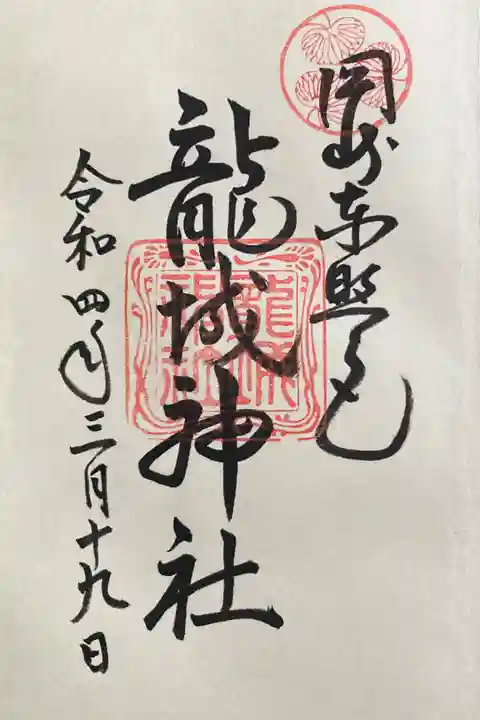 岡崎東照宮
龍城神社
令和四年三月十九日